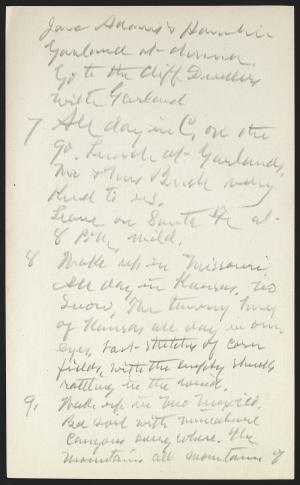 Jane Addams's Hamlin
Garland at dinner.
Go to the Cliff Dwellers
with Garland
7 All day in C, on the
go. Lunch at Garlands.
Mr & Mrs very
kind to us.
Leave on Santa Fe at
8 P.M., mild.
8 Wake up in Missouri.
All day in Kansas, no
snow, The tawny
of Kansas all day in our
eyes, vast stretches of corn
fields, with the empty
rattling in the wind.
9, Wake up in New Mexico.
Red soil with miniature
canyons everywhere. The
mountains all mountains of